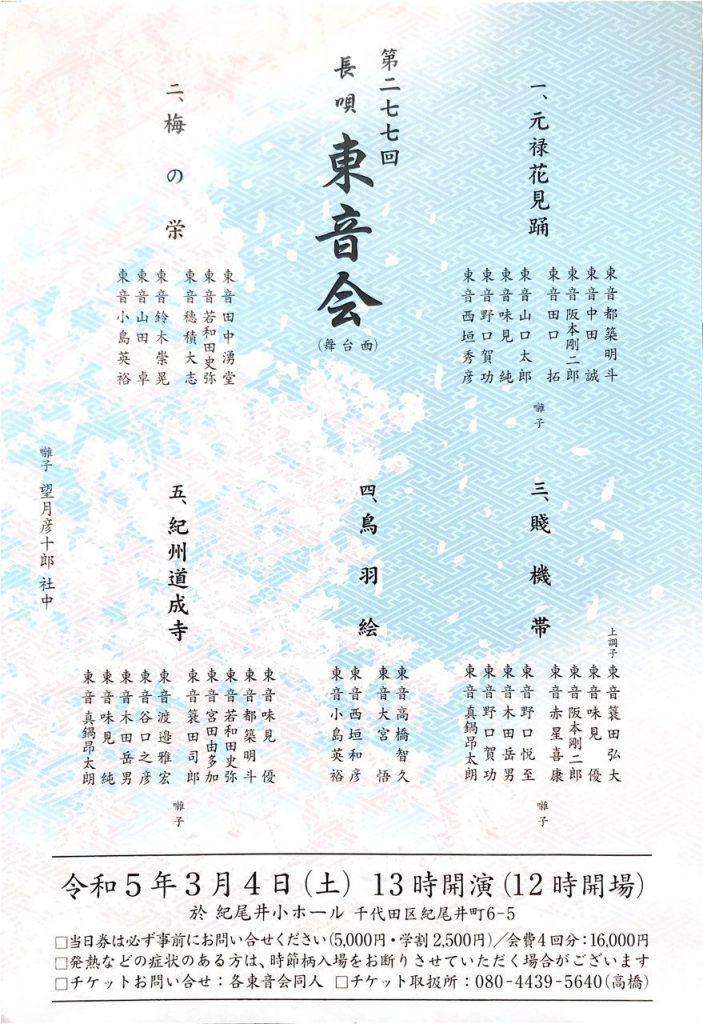 第二七七回
長唄 東音会
(舞台面)
一、元禄花見踊
東音都築明斗
東音中田 誠
東音阪本剛二郎
東音田口 拓
東音山口太郎
東音味見 純
東音野口賀功
東音西垣秀彦
囃子
二、梅の栄
東音田中湧堂
東音若和田史弥
東音穂積大志
東音鈴木崇晃
東音山田 卓
東音小島英裕
三、賤機帯
上調子 東音簑田弘大
東音味見 優
東音阪本剛二郎
東音赤星喜康
東音野口悦至
東音木田岳男
東音野口賀功
東音真鍋昂太朗
囃子
四、鳥羽絵
東音高橋智久
東音大宮 悟
東音西垣和彦
東音小島英裕
五、紀州道成寺
東音味見 優
東音都築明斗
東音若和田史弥
東音宮田由多加
東音簑田司郎
東音渡邉雅宏
東音谷口之彦
東音木田岳男
東音味見 純
東音真鍋昂太朗
囃子
囃子 望月彦十郎 社中
令和5年3月4日(土) 13時開演(12時開場)
於 紀尾井小ホール 千代田区紀尾井町6-5
□当日券は必ず事前にお問い合せください(5,000円・学割2,500円)/会費4回分:16,000円
□発熱などの症状のある方は、時節柄入場をお断りさせていただく場合がございます
□チケットお問い合せ:各東音会同人 □チケット取扱所:080-4439-5640(高橋)